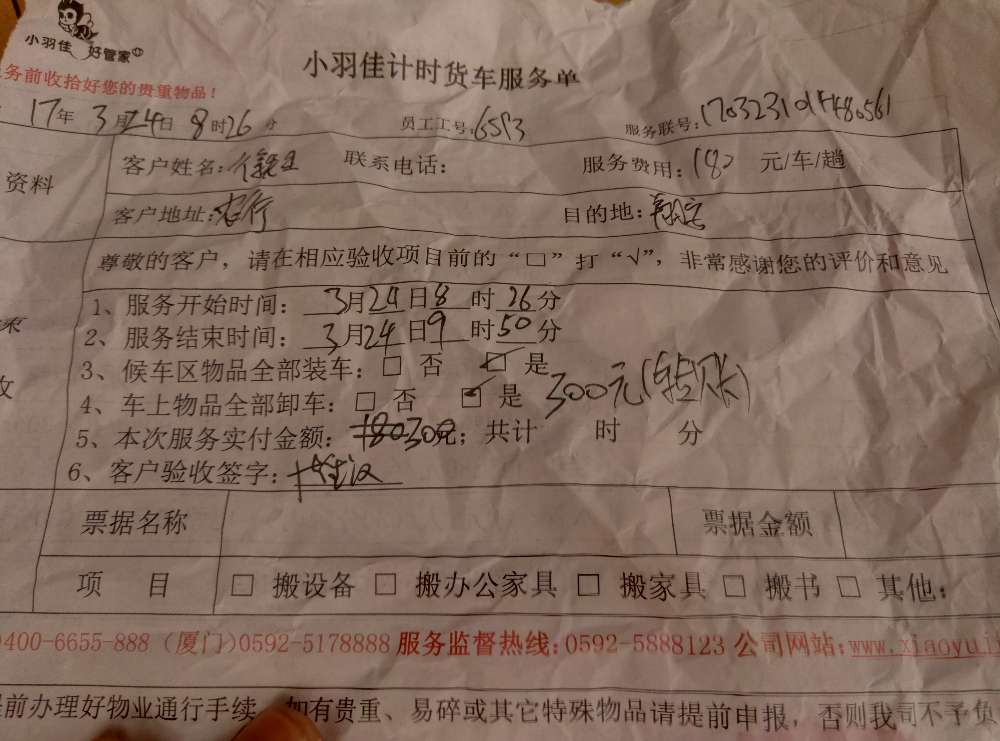 小羽佳 好管家
小羽佳计时货车服务单
务前收拾好您的贵重物品！
17年 3月24日 8时26分 员工工号：6593 服务联号：1703231014480561
资料
客户姓名： 联系电话： 服务费用：180 元/车/趟
客户地址：农行 目的地：
尊敬的客户，请在相应验收项目前的“□”打“√”，非常感谢您的评价和意见
1、服务开始时间：3月24日8时26分
2、服务结束时间：3月24日9时50分
3、候车区物品全部装车：□ 否 ☑ 是
4、车上物品全部卸车：□ 否 ☑ 是 300元(转账)
5、本次服务实付金额：180 30元；共计 时 分
6、客户验收签字：
票据名称 票据金额
项 目 □ 搬设备 □ 搬办公家具 □ 搬家具 □ 搬书 □ 其他：
)400-6655-888 (厦门)0592-5178888 服务监督热线:0592-5888123 公司网站:www.xiaoyuji
前办理好物业通行手续，如有贵重、易碎或其它特殊物品请提前申报，否则我司不予负